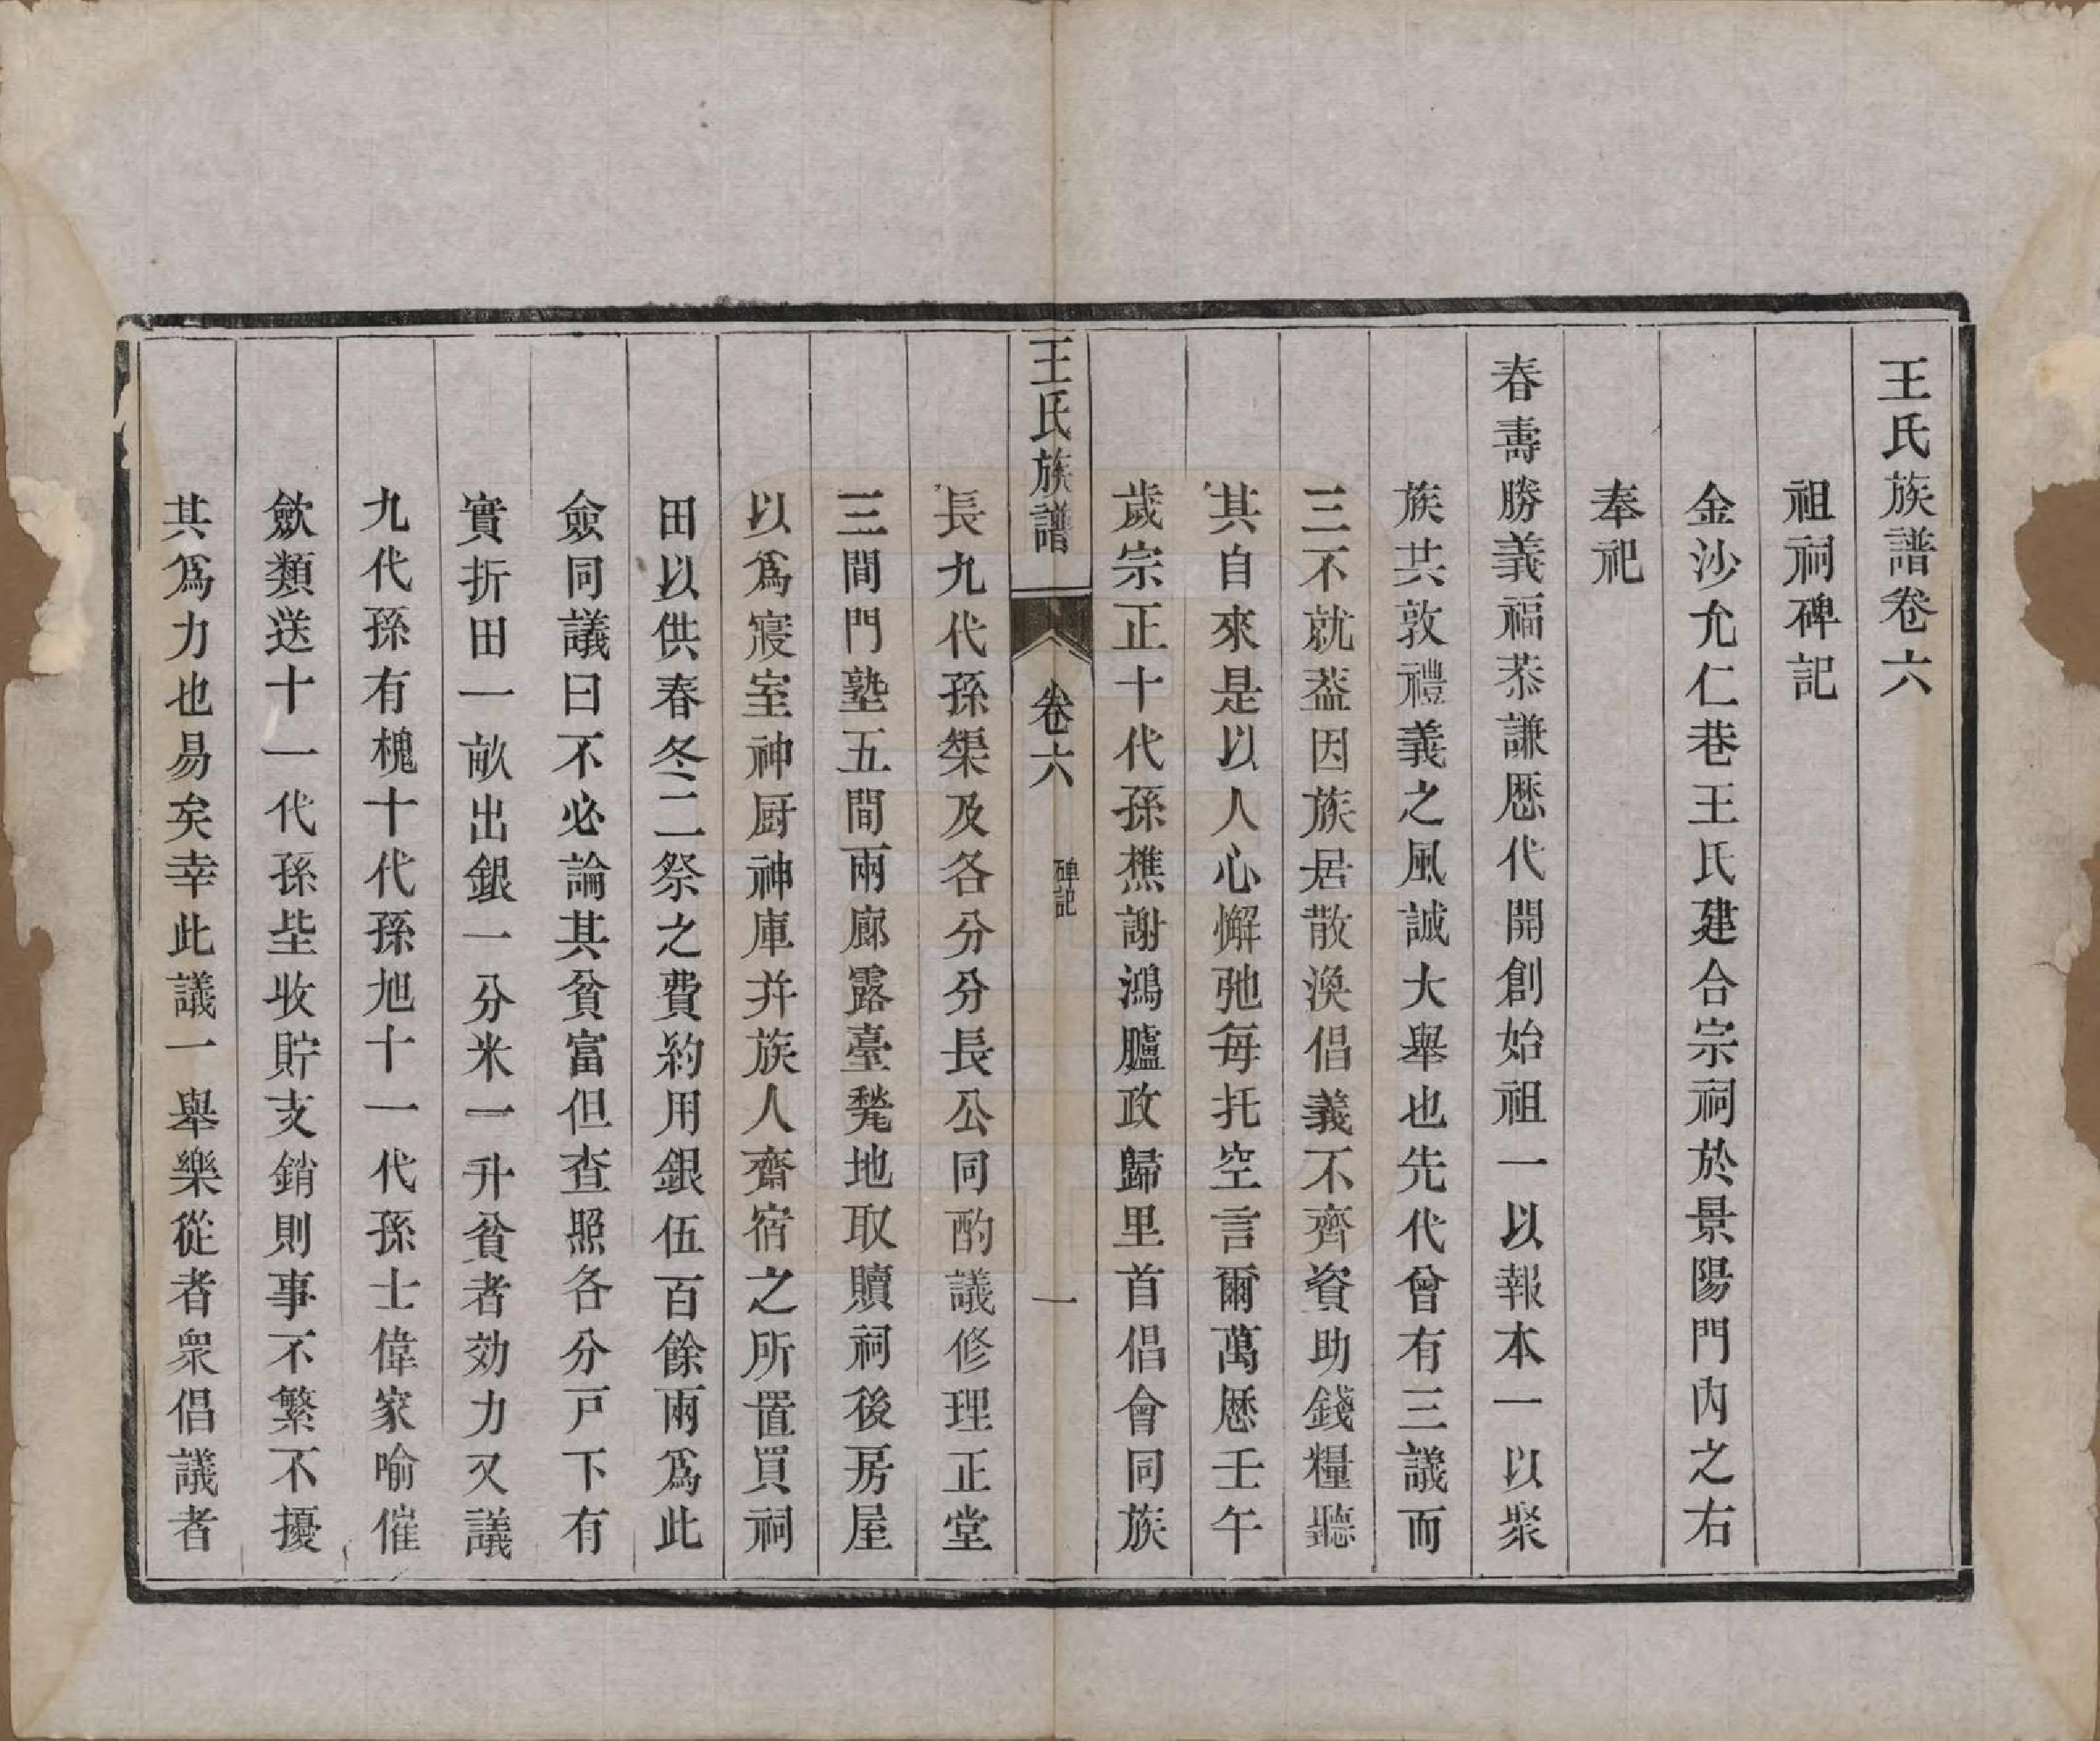 王氏族譜卷六
祖祠碑記
金沙允仁巷王氏建合宗祠於景陽門內之右
奉祀
春壽勝義福恭謙歷代開創始祖一以報本一以聚
族共敦禮義之風誠大舉也先代曾有三議而
三不就葢因族居散渙倡義不齊資助錢糧聽
其自來是以人心懈弛每托空言爾萬歷壬午
歲宗正十代孫樵謝鴻臚政歸里首倡會同族
王氏族譜
卷六
碑記
一
長九代孫榘及各分分長公同酌議修理正堂
三間門塾五間兩廊露臺甃地取贖祠後房屋
以爲寢室神厨神庫并族人齋宿之所置買祠
田以供春冬二祭之費約用銀伍百餘兩爲此
僉同議曰不必論其貧富但查照各分戸下有
實折田一畝出銀一分米一升貧者効力又議
九代孫有槐十代孫旭十一代孫士偉家喻催
歛類送十一代孫坒收貯支銷則事不繁不擾
其爲力也易矣幸此議一舉樂從者衆倡議者